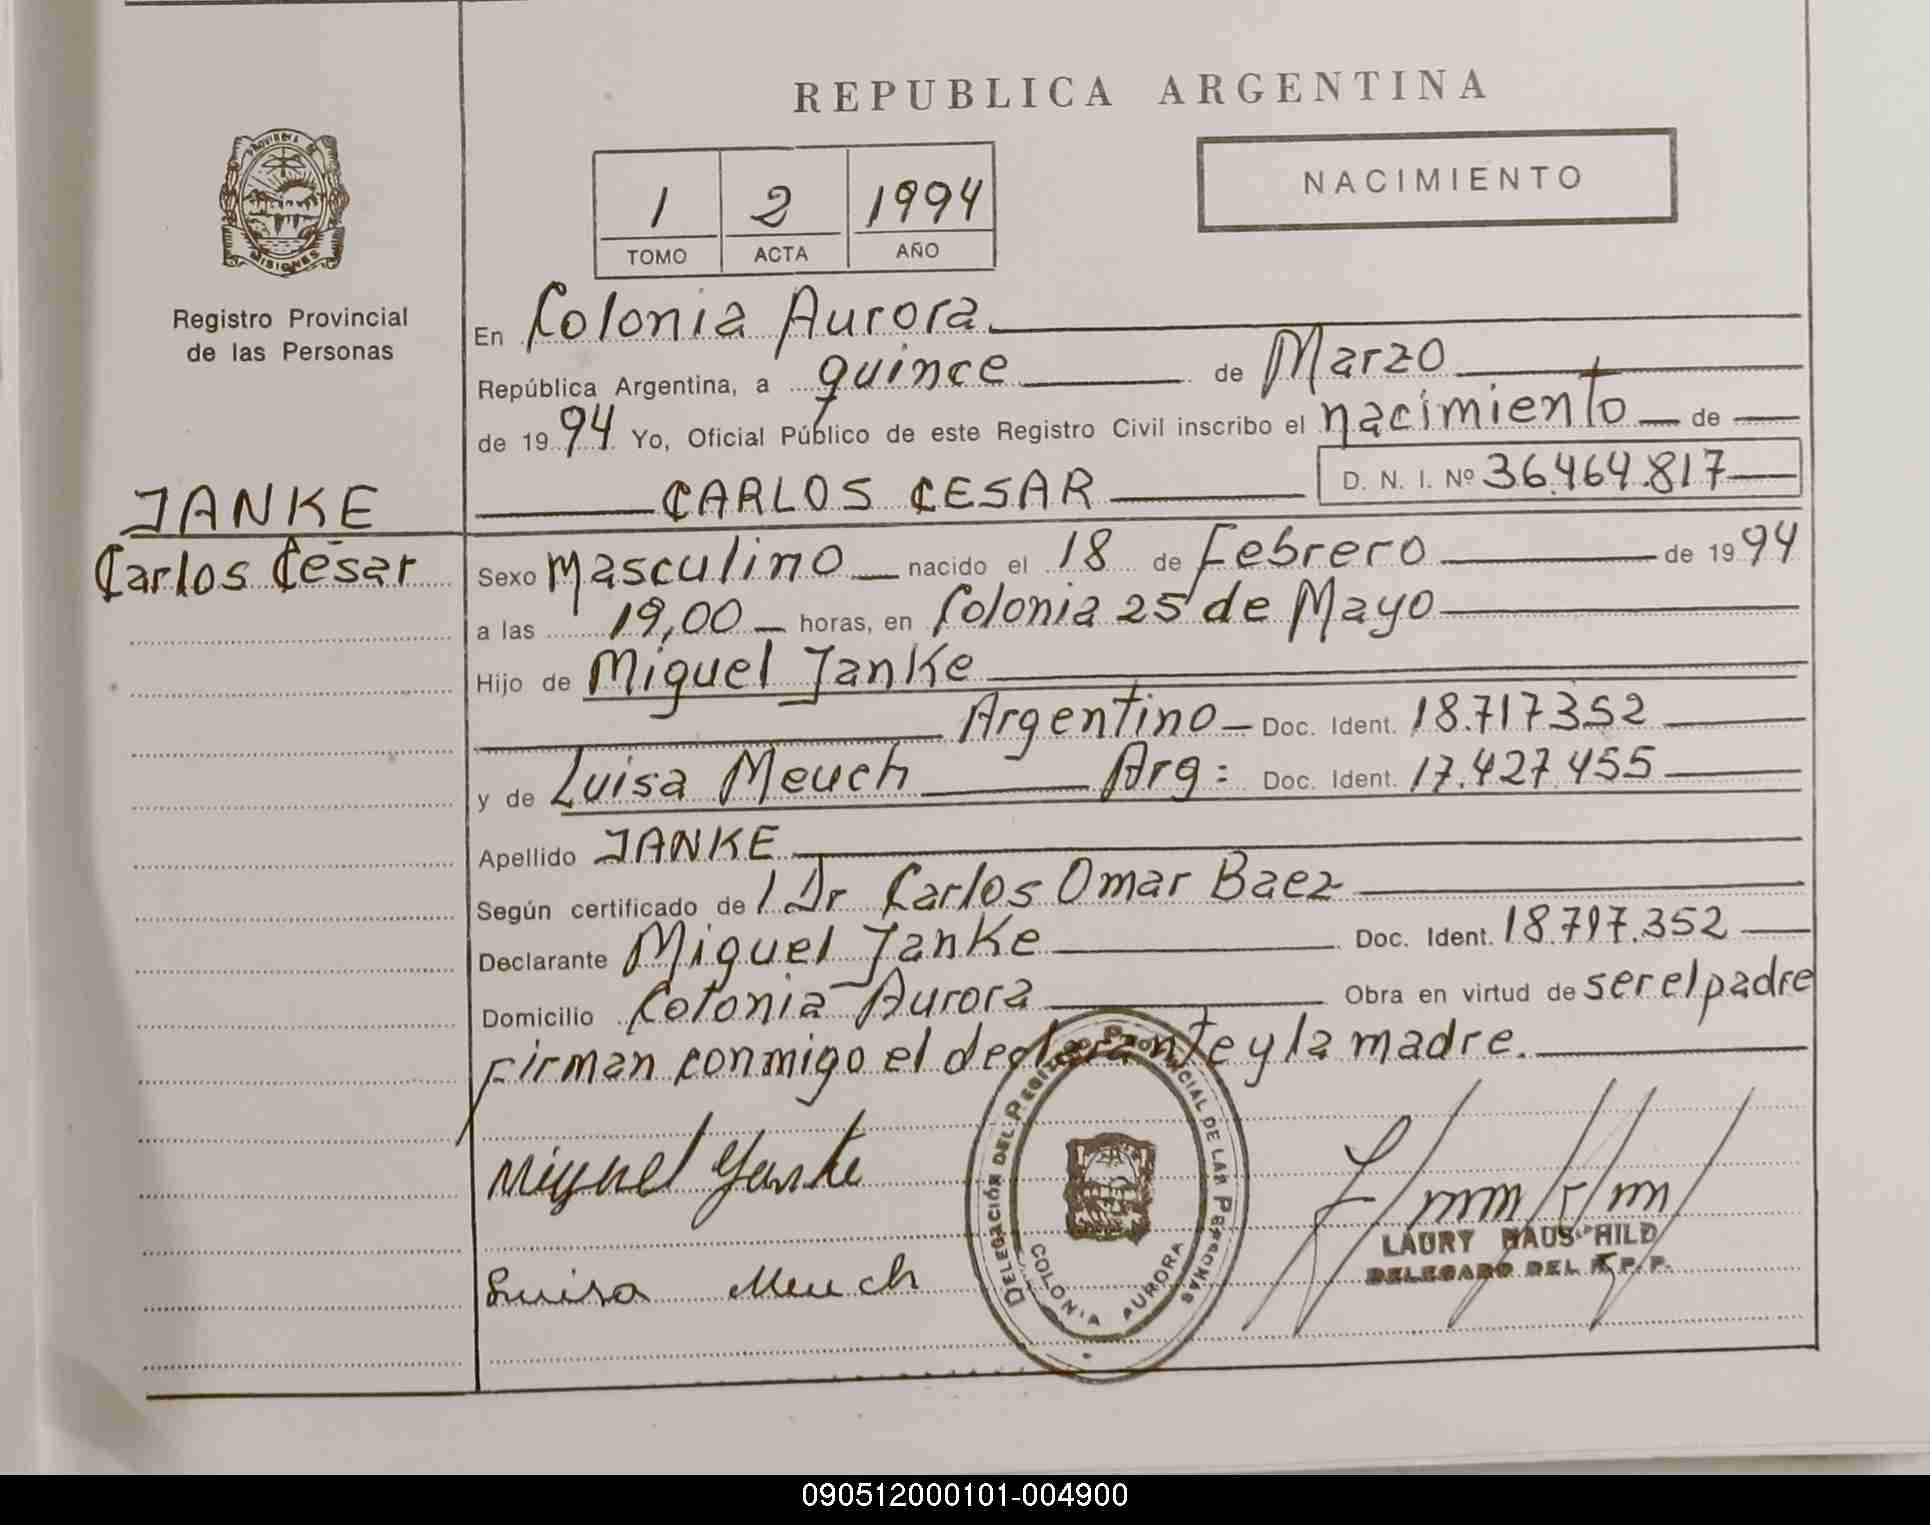 REPUBLICA ARGENTINA
NACIMIENTO
1 2 1994
TOMO ACTA AÑO
PROVINCIA DE
MISIONES
Registro Provincial
de las Personas
JANKE
Carlos César
En Colonia Aurora
República Argentina, a quince de Marzo
de 1994 Yo, Oficial Público de este Registro Civil inscribo el nacimiento de
CARLOS CESAR D. N. I. Nº 36.464.817
Sexo Masculino nacido el 18 de Febrero de 1994
a las 19,00 horas, en Colonia 25 de Mayo
Hijo de Miguel Janke
Argentino Doc. Ident. 18.717352
y de Luisa Meuch Arg: Doc. Ident. 17.427455
Apellido JANKE
Según certificado de l Dr Carlos Omar Baez
Declarante Miguel Janke Doc. Ident. 18.717.352
Domicilio Colonia Aurora Obra en virtud de ser el padre
Firman conmigo el declarante y la madre.
Miguel Janke
Luisa Meuch
DELEGACIÓN DEL REGISTRO PROVINCIAL DE LAS PERSONAS
COLONIA AURORA
LAURY HAUSCHILD
DELEGADO DEL R.P.P.
090512000101-004900